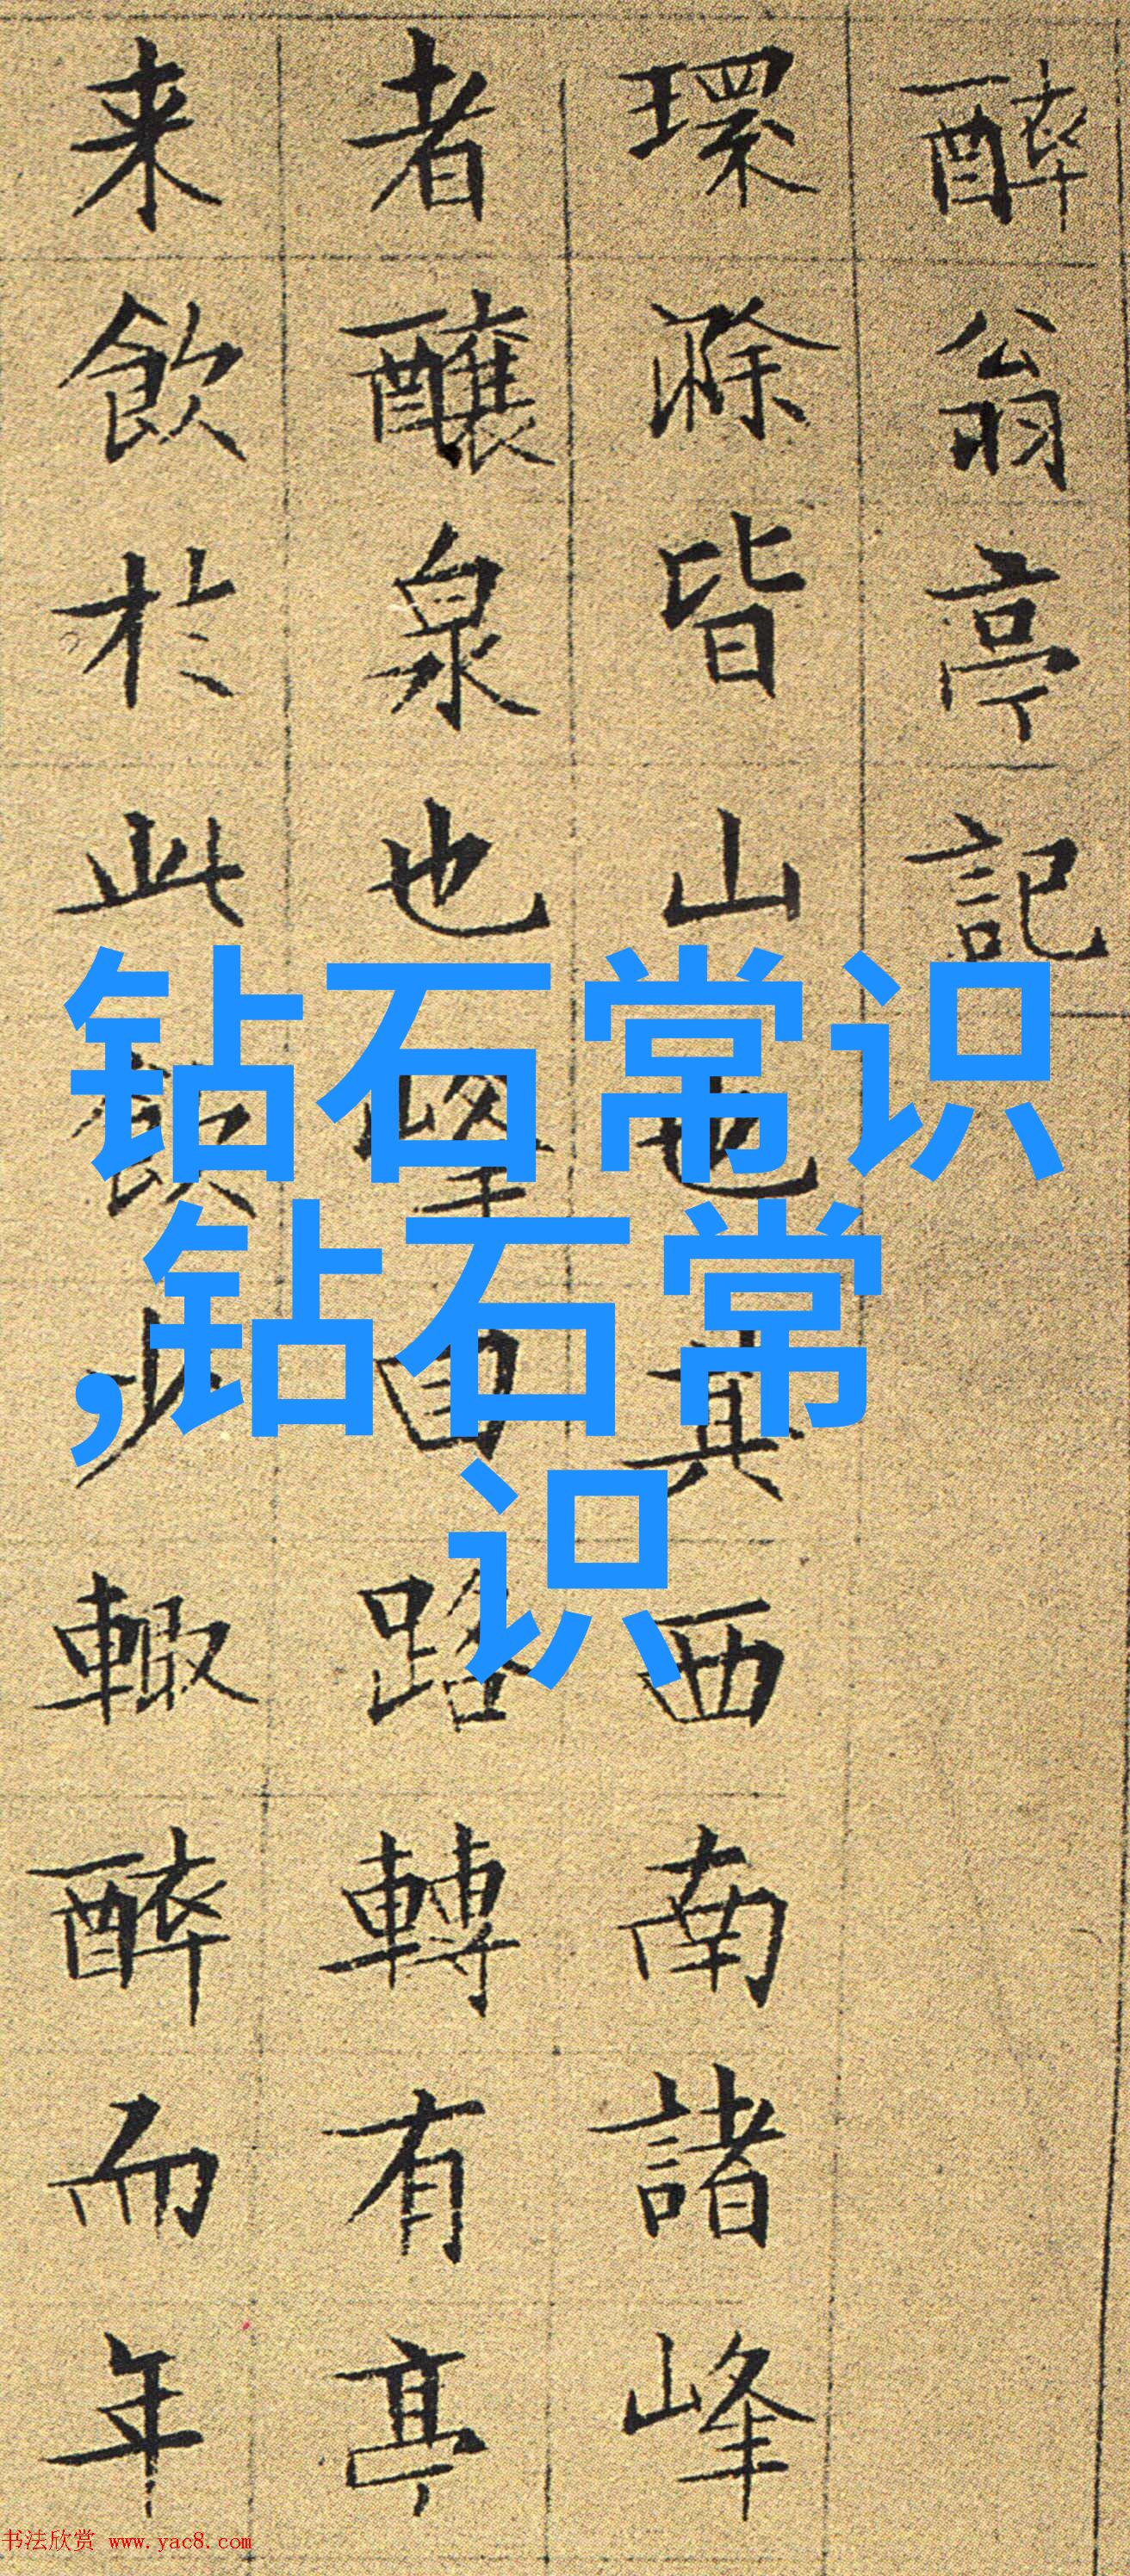 醉翁亭記
環滁皆山也其西南諸峰
者釀泉也峰回路轉有亭
来飲於此飲少輙醉而年
钻石常识
,钻石常
识
书法欣赏 www.yac8.com